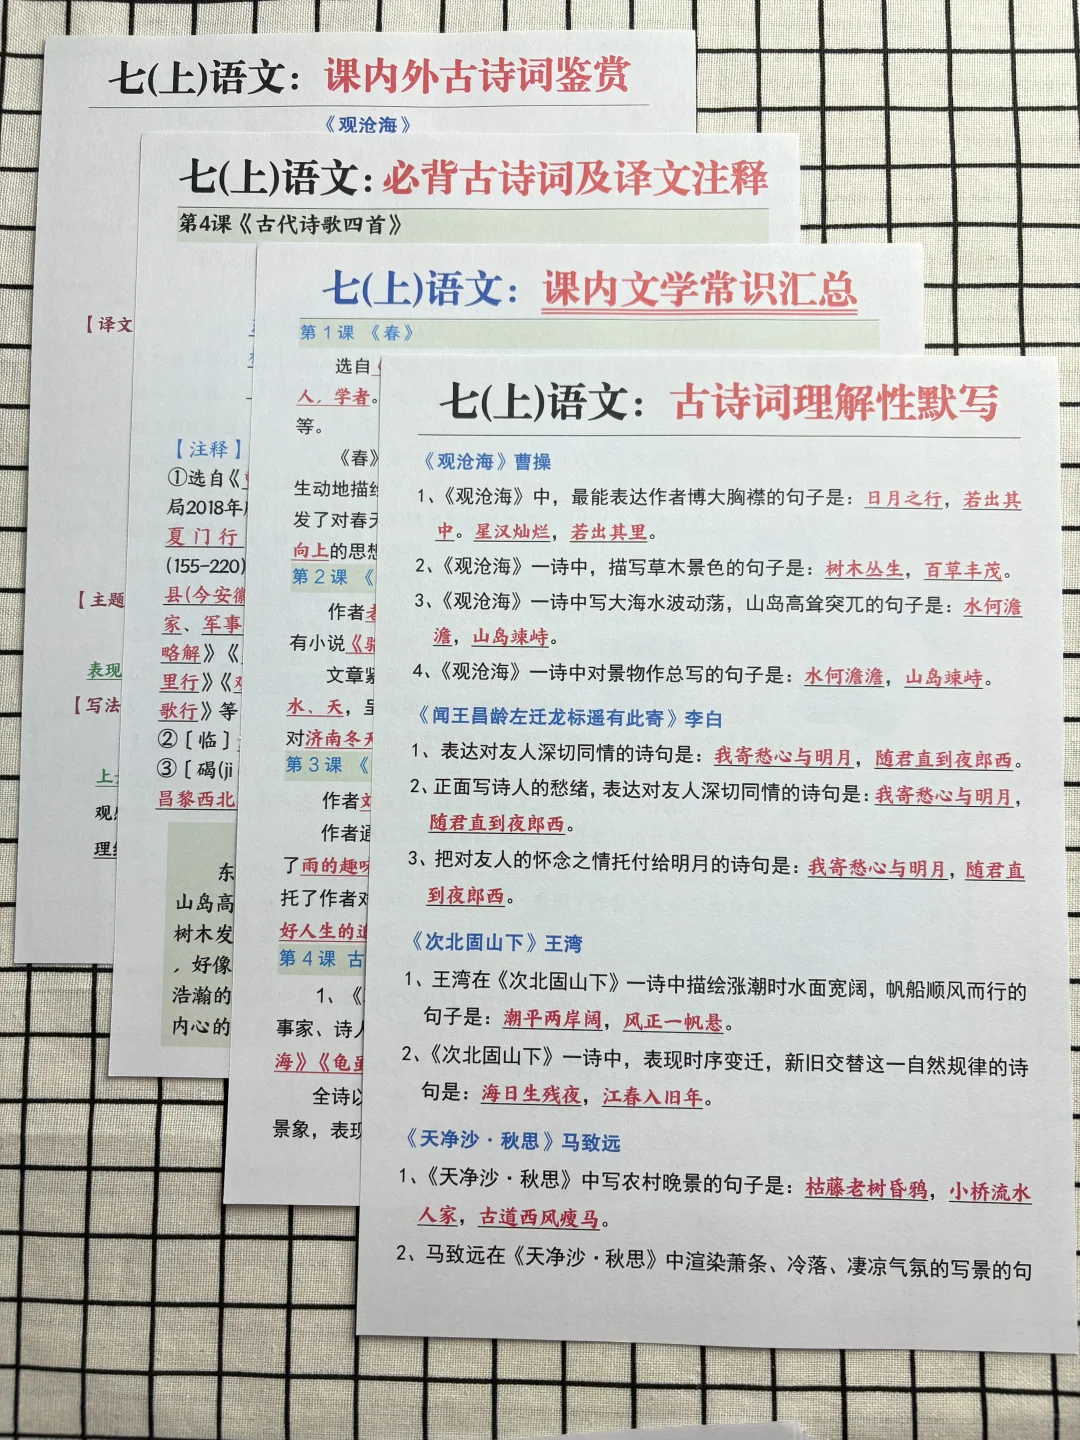 七(上)语文：课内外古诗词鉴赏
《观沧海》
【译文
【主题
表现
【写法
上
观
理
七(上)语文：必背古诗词及译文注释
第4课《古代诗歌四首》
【注释】
①选自《
局2018年
夏门行
(155-220)
县(今安徽
家、军事
略解》《
里行》《
歌行》等
②［临］
③［碣(ji
昌黎西北
东
山岛高
树木发
，好像
浩瀚的
内心的
七(上)语文：课内文学常识汇总
第1课《春》
选自
人，学者。
等。
《春》
生动地描绘
发了对春天
向上的思想
第2课《
作者老
有小说《骆
文章紧
水、天，呈
对济南冬天
第3课《
作者刘
作者通
了雨的趣味
托了作者对
好人生的追
第4课 古
1、《
事家、诗人
海》《龟虽
全诗以
景象，表现
七(上)语文：古诗词理解性默写
《观沧海》曹操
1、《观沧海》中，最能表达作者博大胸襟的句子是：日月之行，若出其
中。星汉灿烂，若出其里。
2、《观沧海》一诗中，描写草木景色的句子是：树木丛生，百草丰茂。
3、《观沧海》一诗中写大海水波动荡，山岛高耸突兀的句子是：水何澹
澹，山岛竦峙。
4、《观沧海》一诗中对景物作总写的句子是：水何澹澹，山岛竦峙。
《闻王昌龄左迁龙标遥有此寄》李白
1、表达对友人深切同情的诗句是：我寄愁心与明月，随君直到夜郎西。
2、正面写诗人的愁绪，表达对友人深切同情的诗句是：我寄愁心与明月，
随君直到夜郎西。
3、把对友人的怀念之情托付给明月的诗句是：我寄愁心与明月，随君直
到夜郎西。
《次北固山下》王湾
1、王湾在《次北固山下》一诗中描绘涨潮时水面宽阔，帆船顺风而行的
句子是：潮平两岸阔，风正一帆悬。
2、《次北固山下》一诗中，表现时序变迁，新旧交替这一自然规律的诗
句是：海日生残夜，江春入旧年。
《天净沙·秋思》马致远
1、《天净沙·秋思》中写农村晚景的句子是：枯藤老树昏鸦，小桥流水
人家，古道西风瘦马。
2、马致远在《天净沙·秋思》中渲染萧条、冷落、凄凉气氛的写景的句